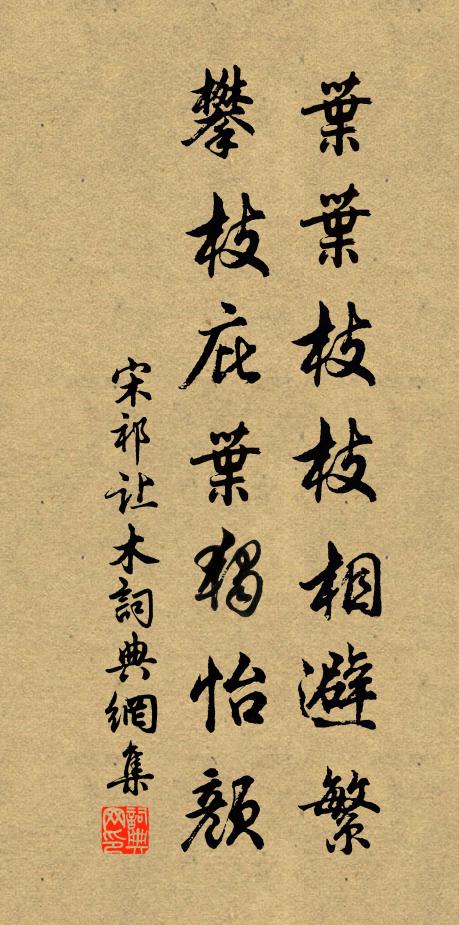 葉葉枝枝相避繁
攀枝庇葉獨怡顏
宋祁让木詞典網集
詞典网印